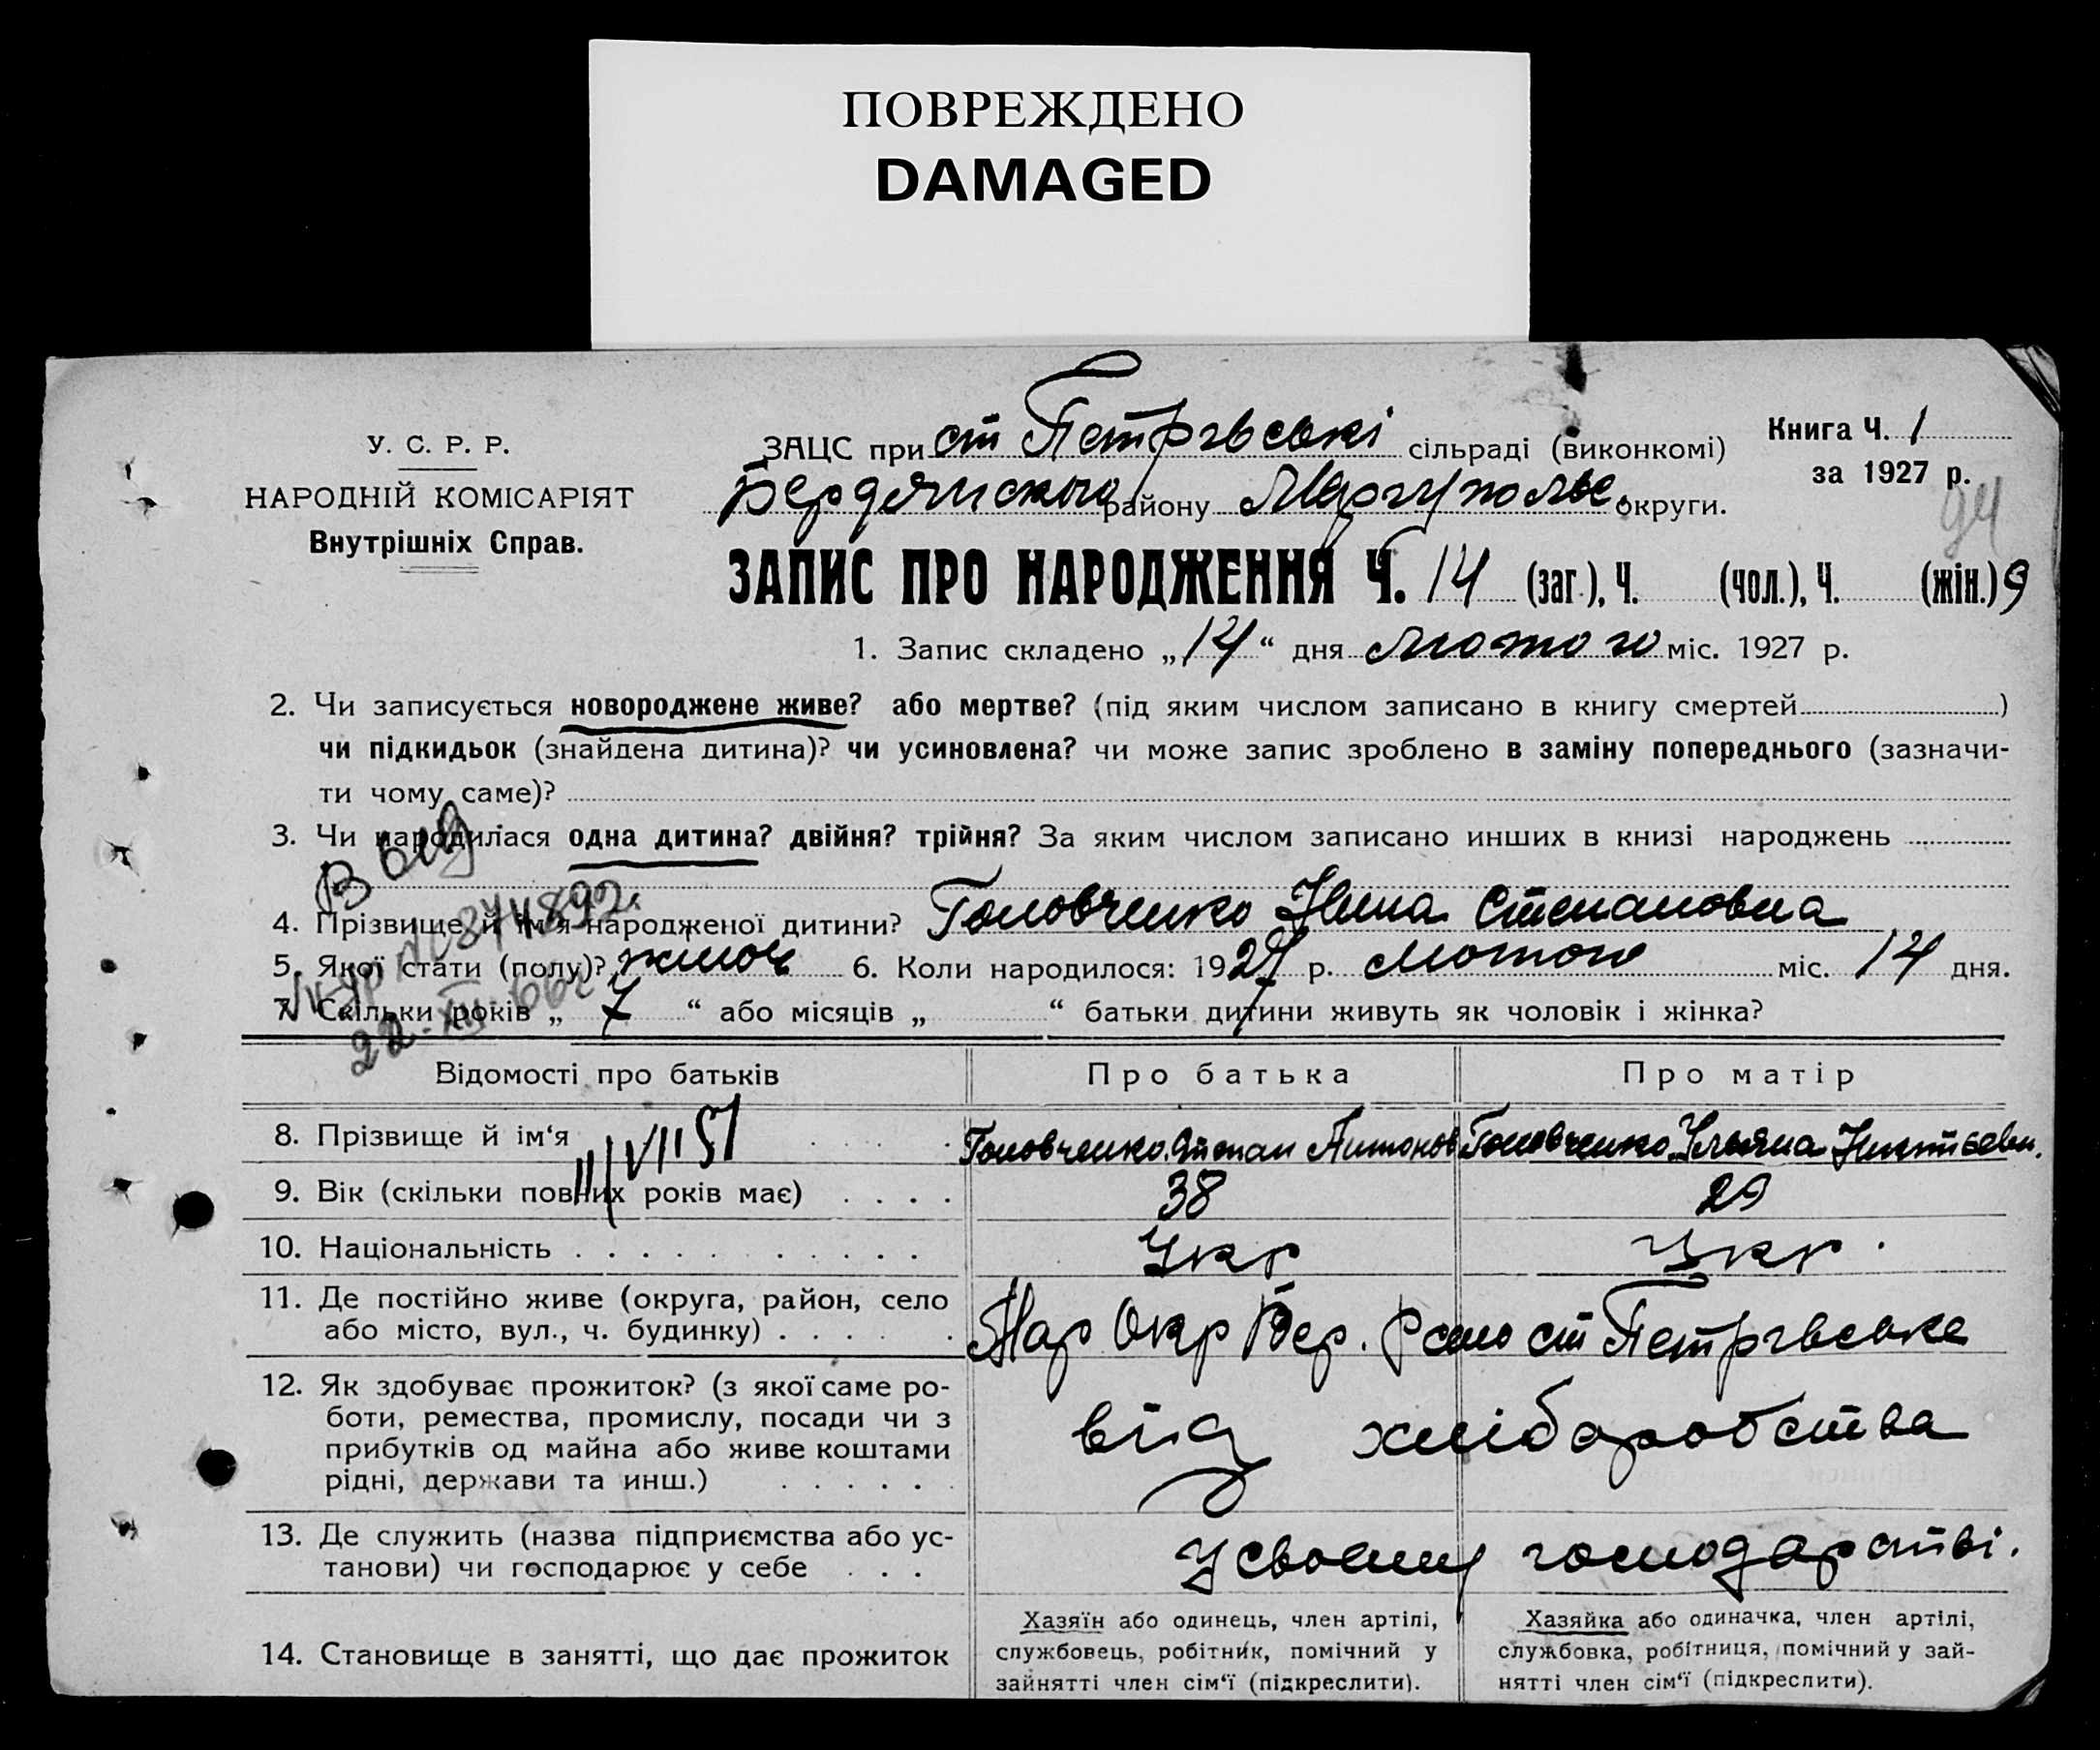 ПОВРЕЖДЕНО
DAMAGED
У. С. Р. Р.
НАРОДНІЙ КОМІСАРІЯТ
Внутрішніх Справ.
ЗАЦС при ст Петрівські сільраді (виконкомі)
Бердянського району Маріупольс округи.
Книга Ч. 1
за 1927 р.
94
ЗАПИС ПРО НАРОДЖЕННЯ Ч. 14 (заг.), Ч. (чол.), Ч. (жін.) 9
1. Запис складено „14“ дня лютого міс. 1927 р.
2. Чи записується новороджене живе? або мертве? (під яким числом записано в книгу смертей)
чи підкидьок (знайдена дитина)? чи усиновлена? чи може запис зроблено в заміну попереднього (зазначи-
ти чому саме)?
3. Чи народилася одна дитина? двійня? трійня? За яким числом записано инших в книзі народжень
4. Прізвище й ім'я народженої дитини? Головченко Нина Степановна
5. Якої стати (полу)? жіноч 6. Коли народилося: 1927 р. лютого міс. 14 дня.
7. Скільки років „ 7 “ або місяців „ “ батьки дитини живуть як чоловік і жінка?
22.XII.66г
Відомості про батьків Про батька Про матір
8. Прізвище й ім‘я Головченко Степан Антонов Головченко Ульяна
9. Вік (скільки повних років має) 38 29
10. Національність Укр Укр.
11. Де постійно живе (округа, район, село
або місто, вул., ч. будинку) Мар Окр Бер. Р село ст Петрівське
12. Як здобуває прожиток? (з якої саме ро-
боти, ремества, промислу, посади чи з
прибутків од майна або живе коштами
рідні, держави та инш.) від хліборобства
13. Де служить (назва підприємства або ус-
танови) чи господарює у себе У своєму господарстві.
14. Становище в занятті, що дає прожиток
Хазяїн або одинець, член артілі,
службовець, робітник, помічний у
зайнятті член сім‘ї (підкреслити).
Хазяйка або одиначка, член артілі,
службовка, робітниця, помічний у зай-
нятті член сім‘ї (підкреслити).